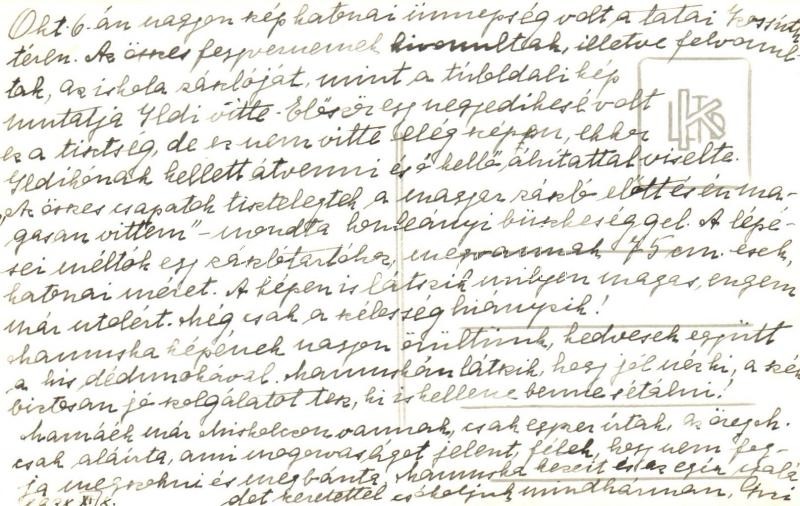 Okt. 6.-án nagyon szép katonai ünnepség volt a tatai Kossuth
téren. Az összes fegyvernemek kivonultak, illetve felvonul-
tak, az iskola zászlóját, mint a túloldali kép
mutatja Ildi vitte. Először egy negyedikesé volt
ez a tisztség, de ez nem vitte elég szépen, ekkor
Ildikónak kellett átvenni és ő kellő áhitattal viselte.
„Az összes csapatok tisztelegtek a magyar zászló előtt és én ma-
gasan vittem" – mondta honleányi büszkeséggel. A lépé-
sei méltók egy zászlótartóhoz, megvannak 75 cm.-esek,
katonai méret. A képen is látszik milyen magas, engem
már utolért. Még csak a szélesség hiányzik!
Mamuska képének nagyon örültünk, kedvesek együtt
a kis dédunokával. Mamuskán látszik, hogy jól néz ki, a szék
biztosan jó szolgálatot tesz, ki is kellene benne sétálni!
Mamáék már Miskolczon vannak, csak egyszer írtak, az öregek
csak aláírta, ami mogorvaságot jelent, félek, hogy nem fog-
ja megszokni és megbánta. Mamuska kezeit és az egész csalá
dot szeretettel csókoljuk mindhárman,